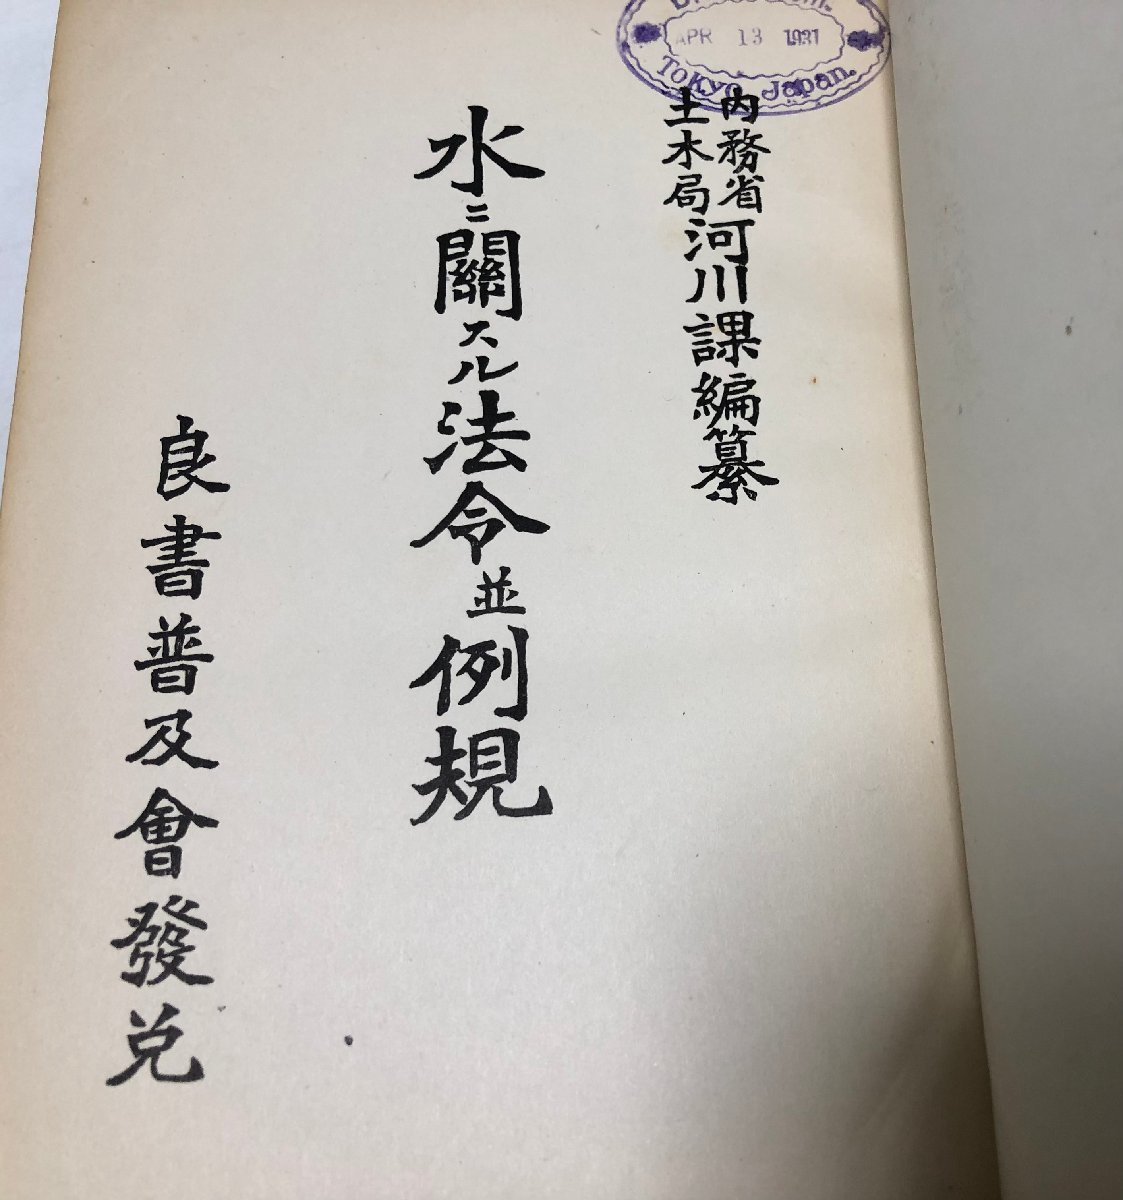 APR 13 1931
Tokyo, Japan.
内務省
土木局
河川課編纂
水ニ關スル法令並例規
良書普及會發兌